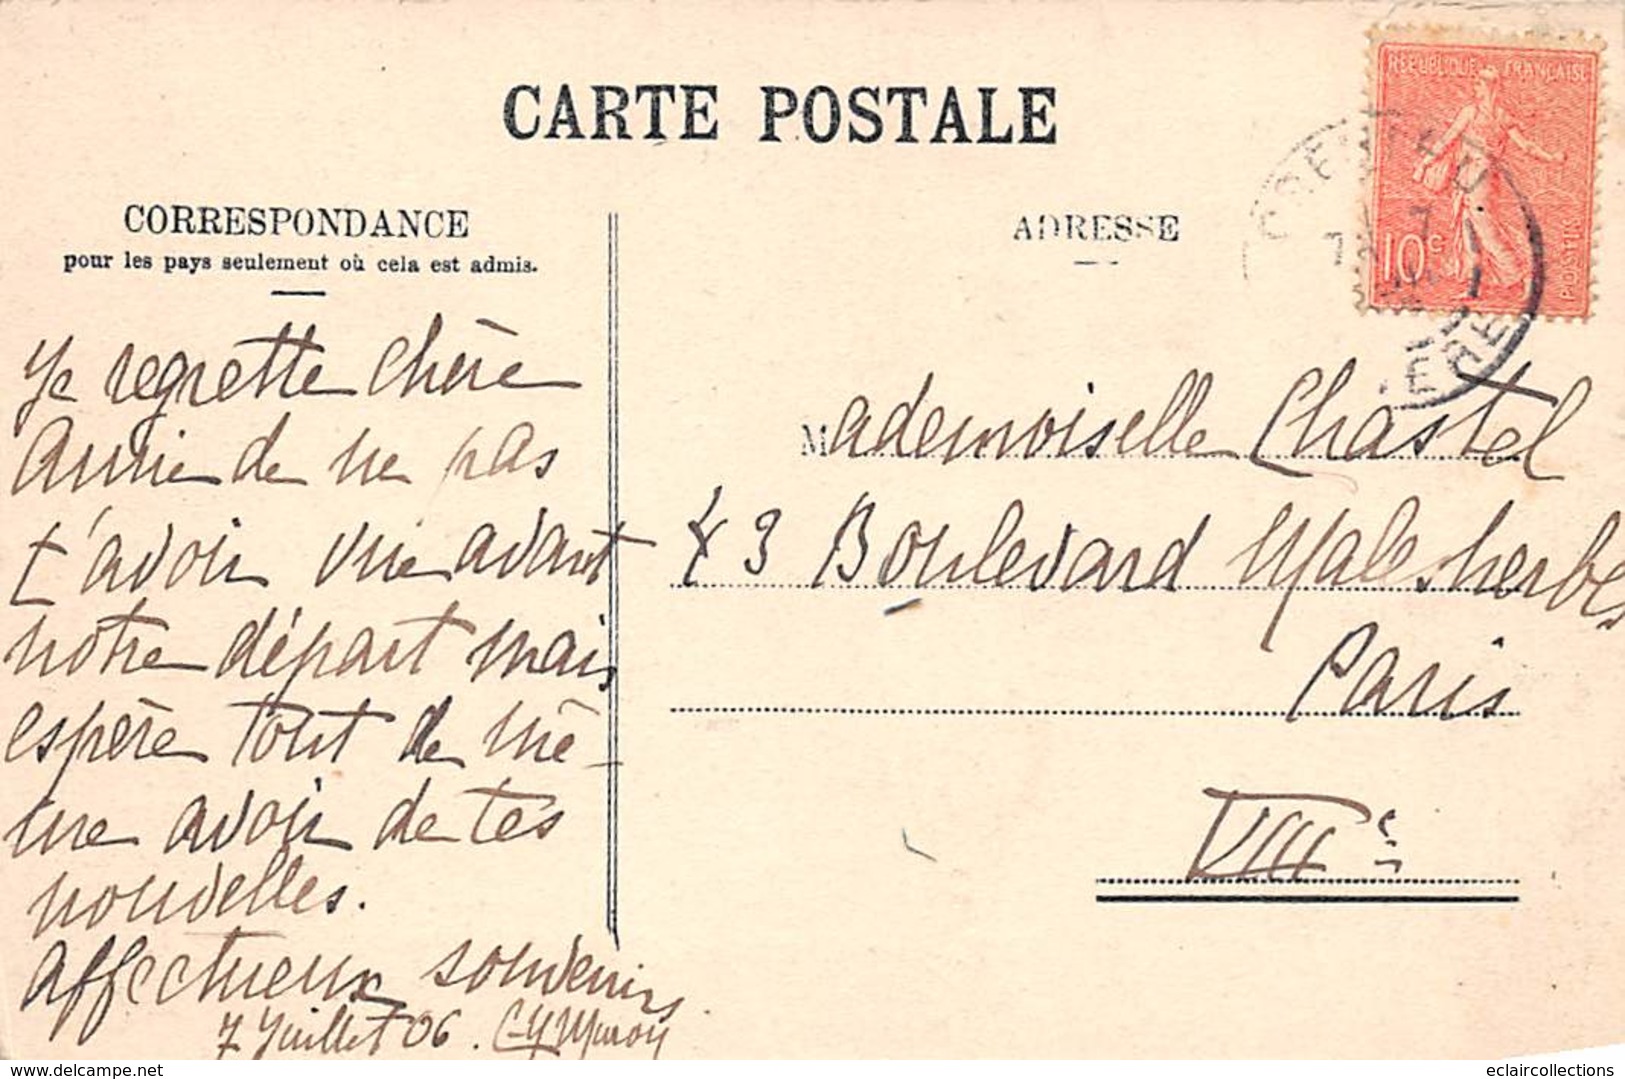 CARTE POSTALE
CORRESPONDANCE
pour les pays seulement où cela est admis.
ADRESSE
REPUBLIQUE FRANÇAISE
10c
POSTES
Je regrette chère
Annie de ne pas
t'avoir vue avant
notre départ mais
espère tout de mê-
me avoir de tes
nouvelles.
Affectueux souvenirs
7 Juillet 06.
Mademoiselle Chastel
43 Boulevard Malesherbes
Paris
VIIIe
eclaircollections